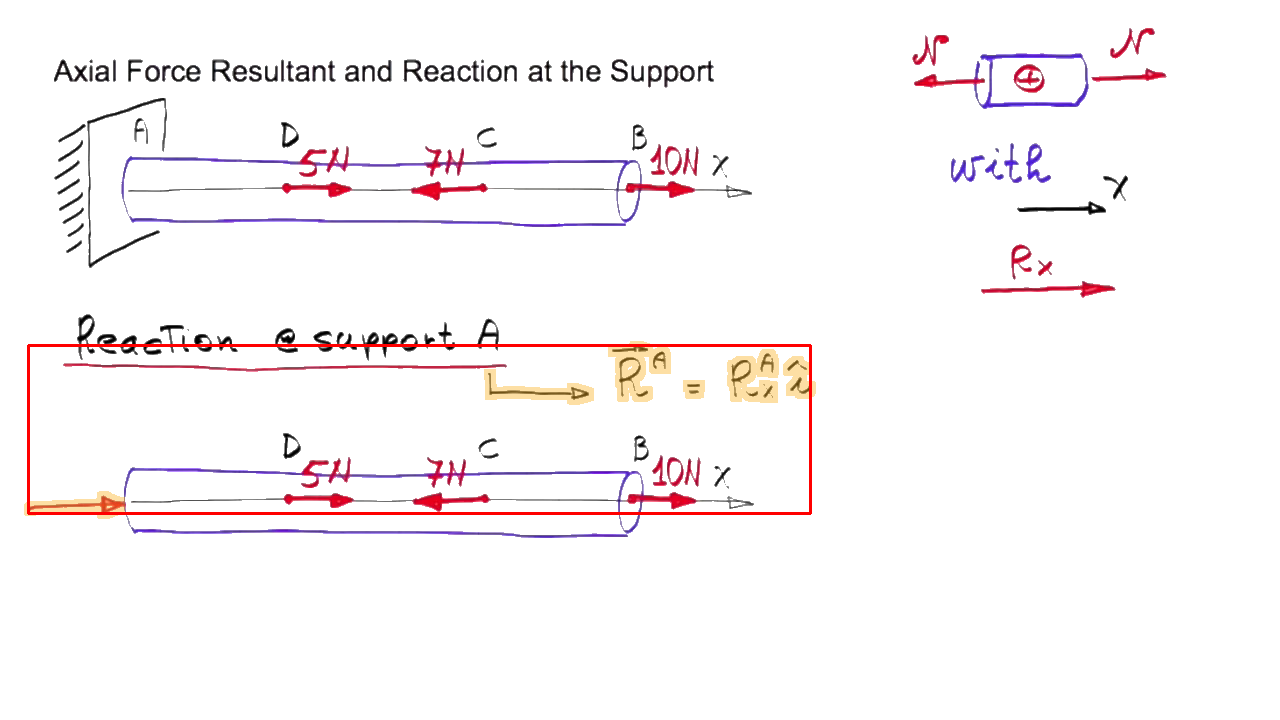 Axial Force Resultant and Reaction at the Support
N N
A D 5N 7N C B 10N x
with
x
Rx
Reaction @ support A
R^A = R_x^A î
D 5N 7N C B 10N x